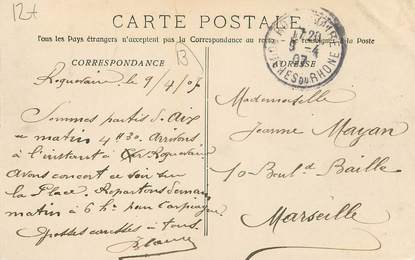 12+
B
CARTE POSTALE
Tous les Pays étrangers n'acceptent pas la Correspondance au
CORRESPONDANCE
ADRESSE
17-20
9-4
07
BCHES DU RHONE
Roquevaire le 9/4/07
Sommes partis d'Aix
ce matin 4h30. Arrivons
à l'instant à Roquevaire
Avons concert ce soir sur
la Place. Repartons demain
matin à 6h pour Carpiagne
à tous.
Mademoiselle
Jeanne Mayan
10 Boul.d Baille
Marseille